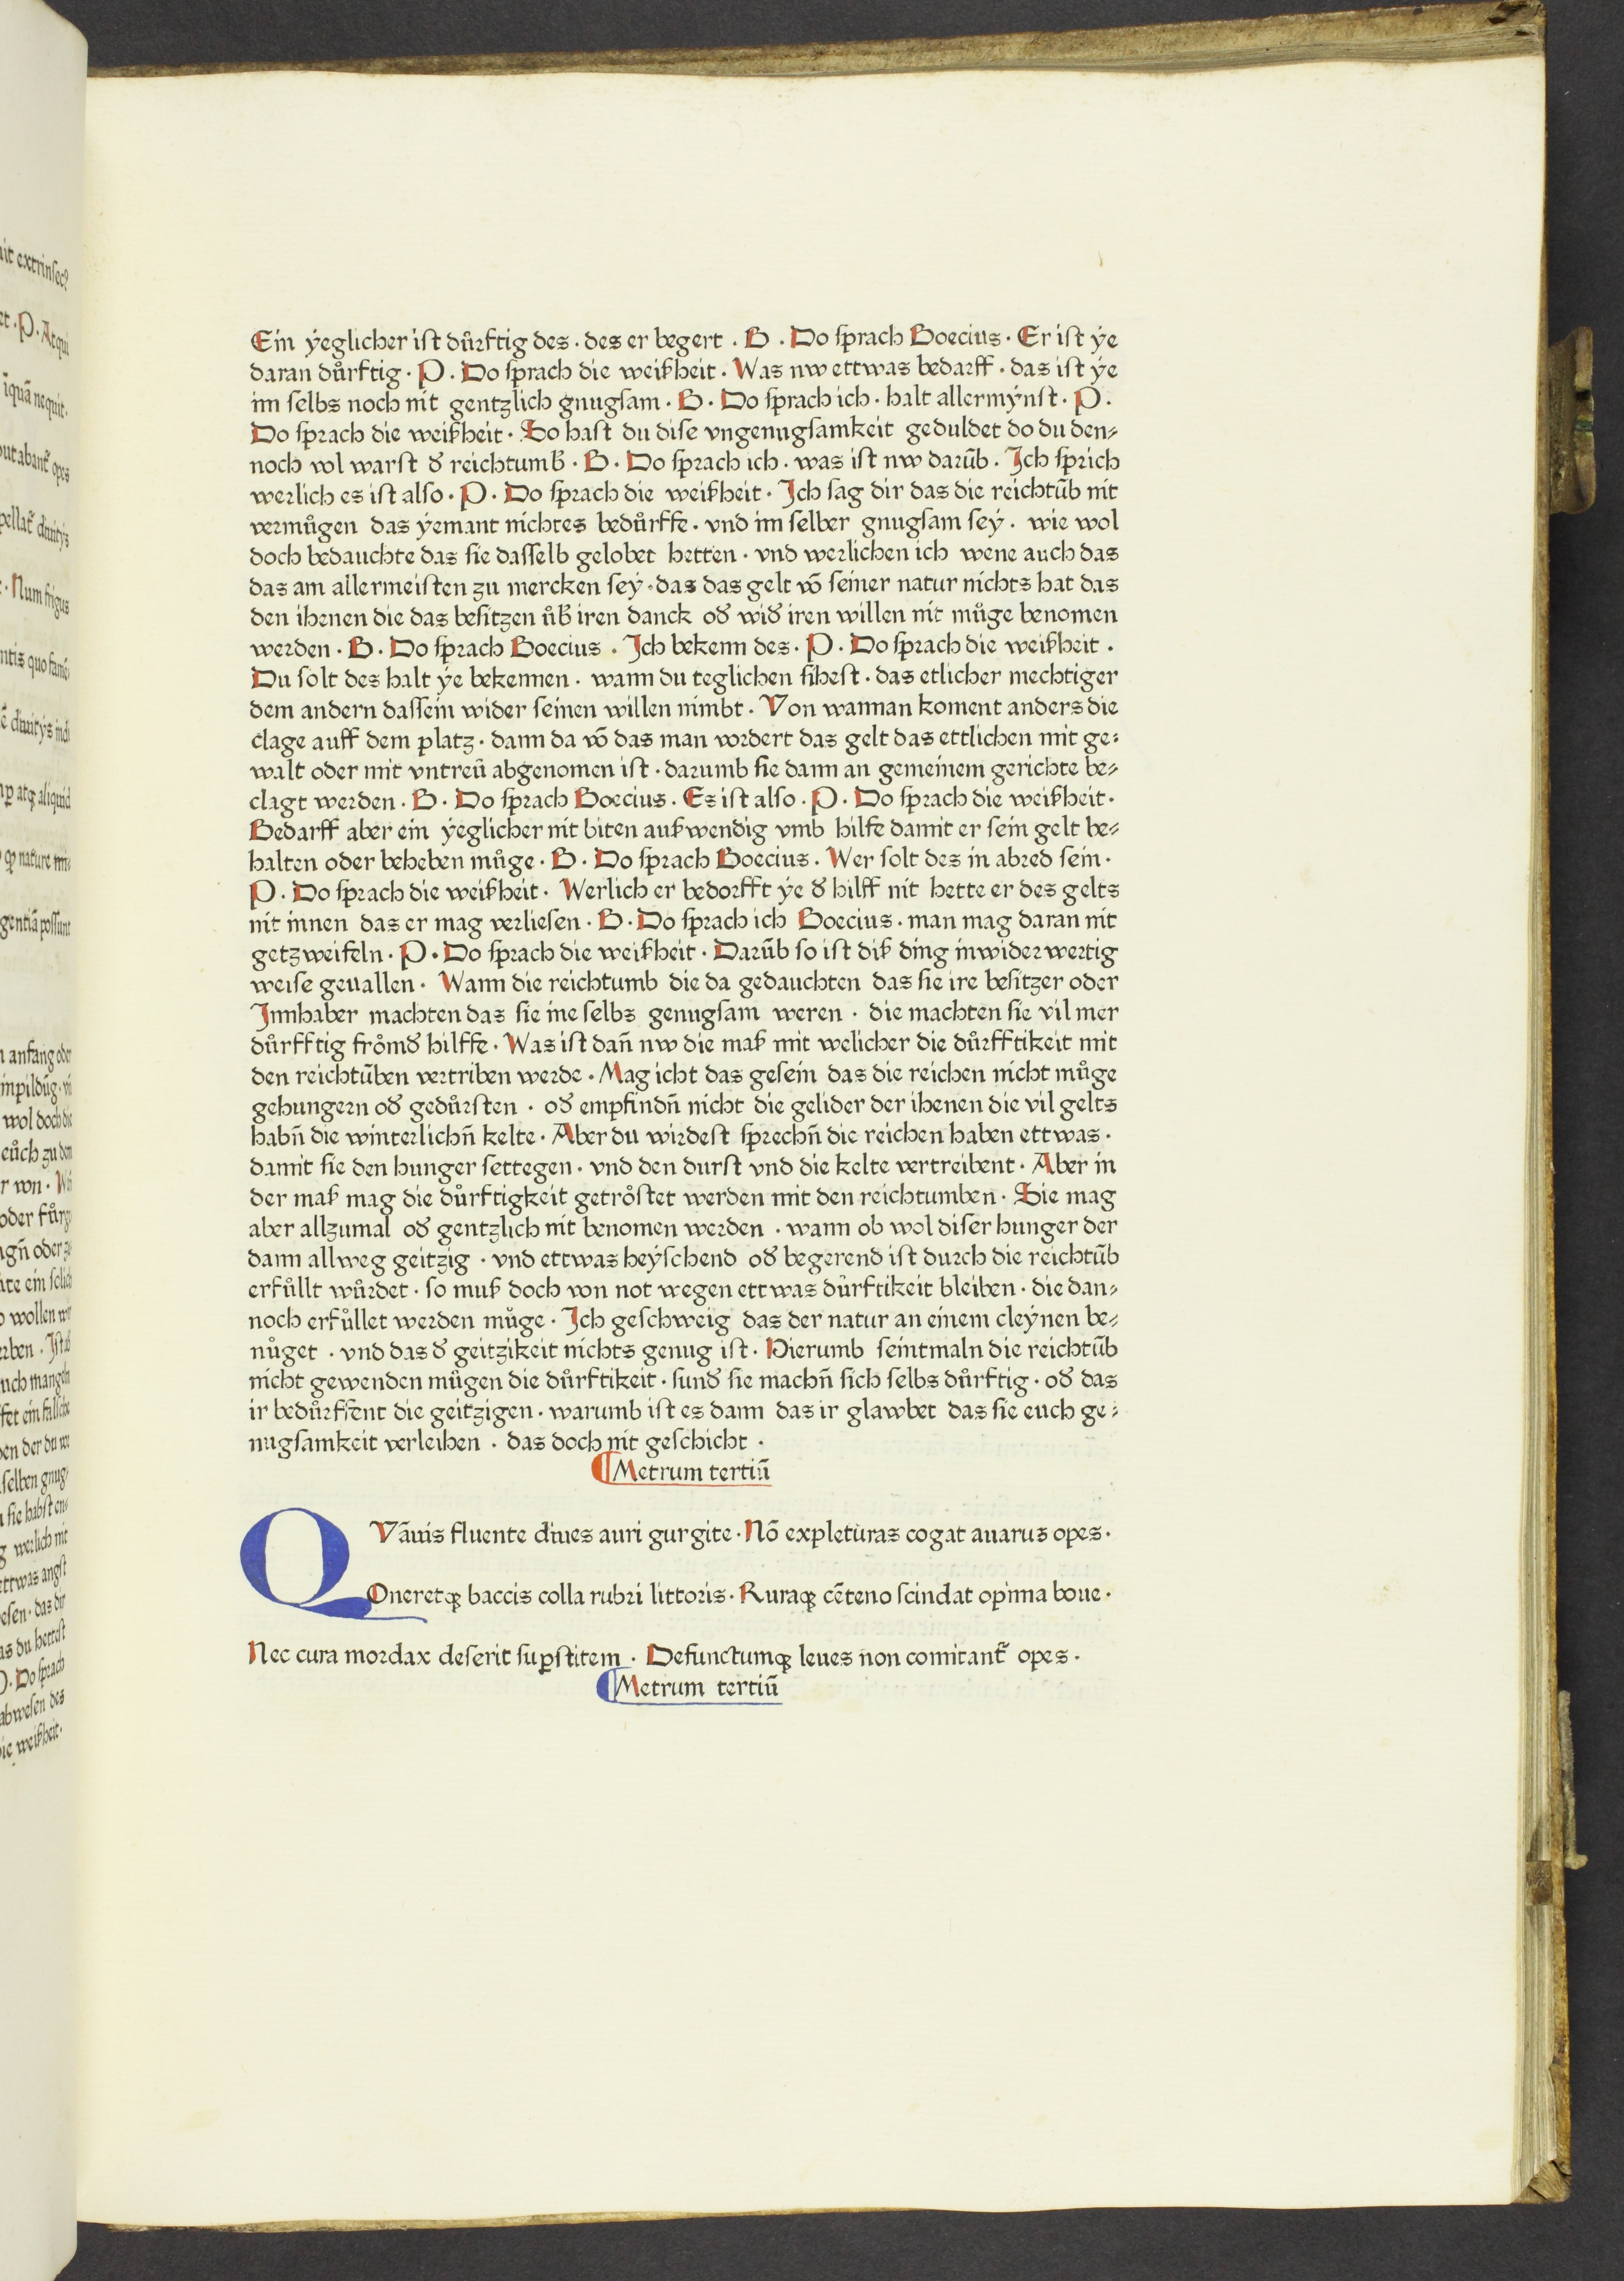 Ein ÿeglicher ist důrftig des · des er begert · B · Do sprach Boecius · Er ist ÿe
daran důrftig · P · Do sprach die weißheit · Was nw ettwas bedarff · das ist ÿe
im selbs noch nit gentzlich gnugsam · B · Do sprach ich · halt allermÿnst · P ·
Do sprach die weißheit · So hast du dise vngenugsamkeit geduldet do du den⸗
noch vol warst đ reichtumb̄ · B · Do sprach ich · was ist nw darūb · Ich sprich
werlich es ist also · P · Do sprach die weißheit · Ich sag dir das die reichtūb nit
vermůgen das ÿemant nichtes bedůrffe · vnd im selber gnugsam seÿ · wie wol
doch bedauchte das sie dasselb gelobet hetten · vnd werlichen ich wene auch das
das am allermeisten zu mercken seÿ · das das gelt vō seiner natur nichts hat das
den ihenen die das besitzen ůb̄ iren danck ođ wiđ iren willen nit můge benomen
werden · B · Do sprach Boecius · Ich bekenn des · P · Do sprach die weißheit ·
Du solt des halt ÿe bekennen · wann du teglichen sihest · das etlicher mechtiger
dem andern dassein wider seinen willen nimbt · Von wannan koment anders die
clage auff dem platz · dann da vō das man vordert das gelt das ettlichen mit ge⸗
walt oder mit vntreū abgenomen ist · darumb sie dann an gemeinem gerichte be⸗
clagt werden · B · Do sprach Boecius · Es ist also · P · Do sprach die weißheit ·
Bedarff aber ein ÿeglicher nit biten außwendig vmb hilfe damit er sein gelt be⸗
halten oder beheben můge · B · Do sprach Boecius · Wer solt des in abred sein ·
P · Do sprach die weißheit · Werlich er bedorfft ÿe đ hilff nit hette er des gelts
nit innen das er mag verliesen · B · Do sprach ich Boecius · man mag daran nit
getzweifeln · P · Do sprach die weißheit · Darūb so ist diß ding inwiderwertig
weise geuallen · Wann die reichtumb die da gedauchten das sie ire besitzer oder
Innhaber machten das sie ine selbs genugsam weren · die machten sie vil mer
důrfftig frőmđ hilffe · Was ist dañ nw die maß mit welicher die důrfftikeit mit
den reichtūben vertriben werde · Mag icht das gesein das die reichen nicht můge
gehungern ođ gedůrsten · ođ empfindñ nicht die gelider der ihenen die vil gelts
habñ die winterlichñ kelte · Aber du wirdest sprechñ die reichen haben ettwas ·
damit sie den hunger settegen · vnd den durst vnd die kelte vertreibent · Aber in
der maß mag die důrftigkeit getrőstet werden mit den reichtumben · Sie mag
aber allzumal ođ gentzlich nit benomen werden · wann ob wol diser hunger der
dann allweg geitzig · vnd ettwas heÿschend ođ begerend ist durch die reichtūb
erfůllt wůrdet · so muß doch von not wegen ettwas důrftikeit bleiben · die dan⸗
noch erfůllet werden můge · Ich geschweig das der natur an einem cleÿnen be⸗
nůget · vnd das đ geitzikeit nichts genug ist · Hierumb seintmaln die reichtūb
nicht gewenden mügen die důrftikeit · sunđ sie machñ sich selbs důrftig · ođ das
ir bedůrffent die geitzigen · warumb ist es dann das ir glawbet das sie euch ge⸗
nugsamkeit verleihen · das doch nit geschicht ·
¶ Metrum tertiū
QVāuis fluente diues auri gurgite · Nō expleturas cogat auarus opes ·
Oneretqꝫ baccis colla rubri littoris · Ruraqꝫ cēteno scindat opima boue ·
Nec cura mordax deserit suꝑstitem · Defunctumqꝫ leues non comitant᷑ opes ·
¶ Metrum tertiū